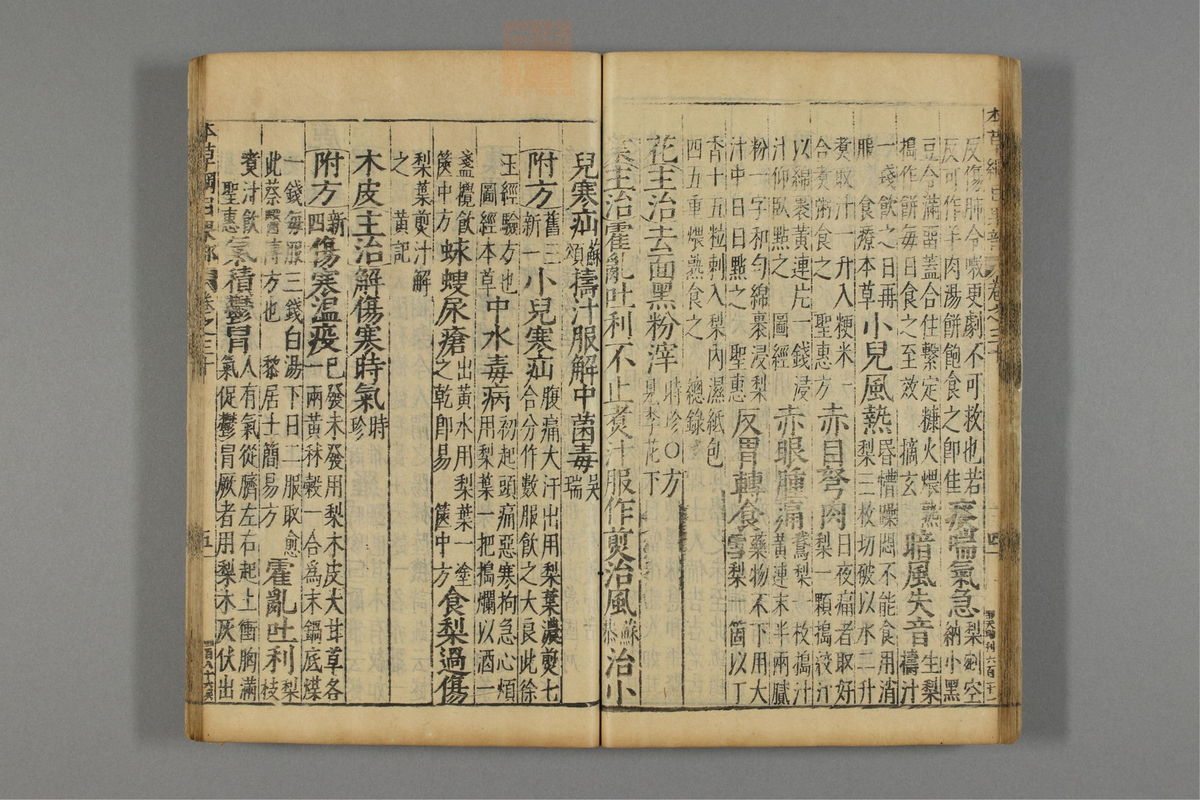 反傷肺令嗽更劇不可救也若
反可作羊肉湯餅飽食之即佳 痰喘氣急 梨剜空納小黑
豆令滿留蓋合住繫定糠火煨熟
搗作餅每日食之至效 摘玄 暗風失音 生梨搗汁
一錢飲之日再
服食療本草 小兒風熱 昏懵躁悶不能食用消梨三枚切破以水二升
煑取汁一升入粳米一
合煑粥食之 聖惠方 赤目弩肉 日夜痛者取好梨一顆搗絞汁
以綿裹黃連片一錢浸
汁仰臥點之 圖經 赤眼腫痛 鵞梨一枚搗汁黃連末半兩膩
粉一字和勻綿裹浸梨
汁中日日點之 聖惠 反胃轉食 藥物不下用大雪梨一箇以丁
香十五粒刺入梨內濕紙包
四五重煨熟食之 總錄
花主治去面黑粉滓 時珍○方見李花下
葉主治霍亂吐利不止煑汁服作煎治風 蘇恭 治小
兒寒疝 蘇頌 擣汁服解中菌毒 吳瑞
附方 舊三新一 小兒寒疝 腹痛大汗出用梨葉濃煎七
合分作數服飲之大良此徐
王經驗方也
圖經本草 中水毒病 初起頭痛惡寒拘急心煩用梨葉一把搗爛以酒一
盞攪飲
篋中方 蠼螋尿瘡 出黃水用梨葉一塗之乾即易 篋中方 食梨過傷
梨葉煎汁解
之 黃記
木皮主治解傷寒時氣 時珍
附方 新四 傷寒溫疫 已發未發用梨木皮大甘草各一兩黃秫穀一合爲末鍋底煤
一錢每服三錢白湯下日二服取愈
此蔡醫博方也 黎居士簡易方 霍亂吐利 梨枝
煑汁飲
聖惠 氣積鬱冒 人有氣從臍左右起上衝胸滿氣促鬱冒厥者用梨木灰伏出